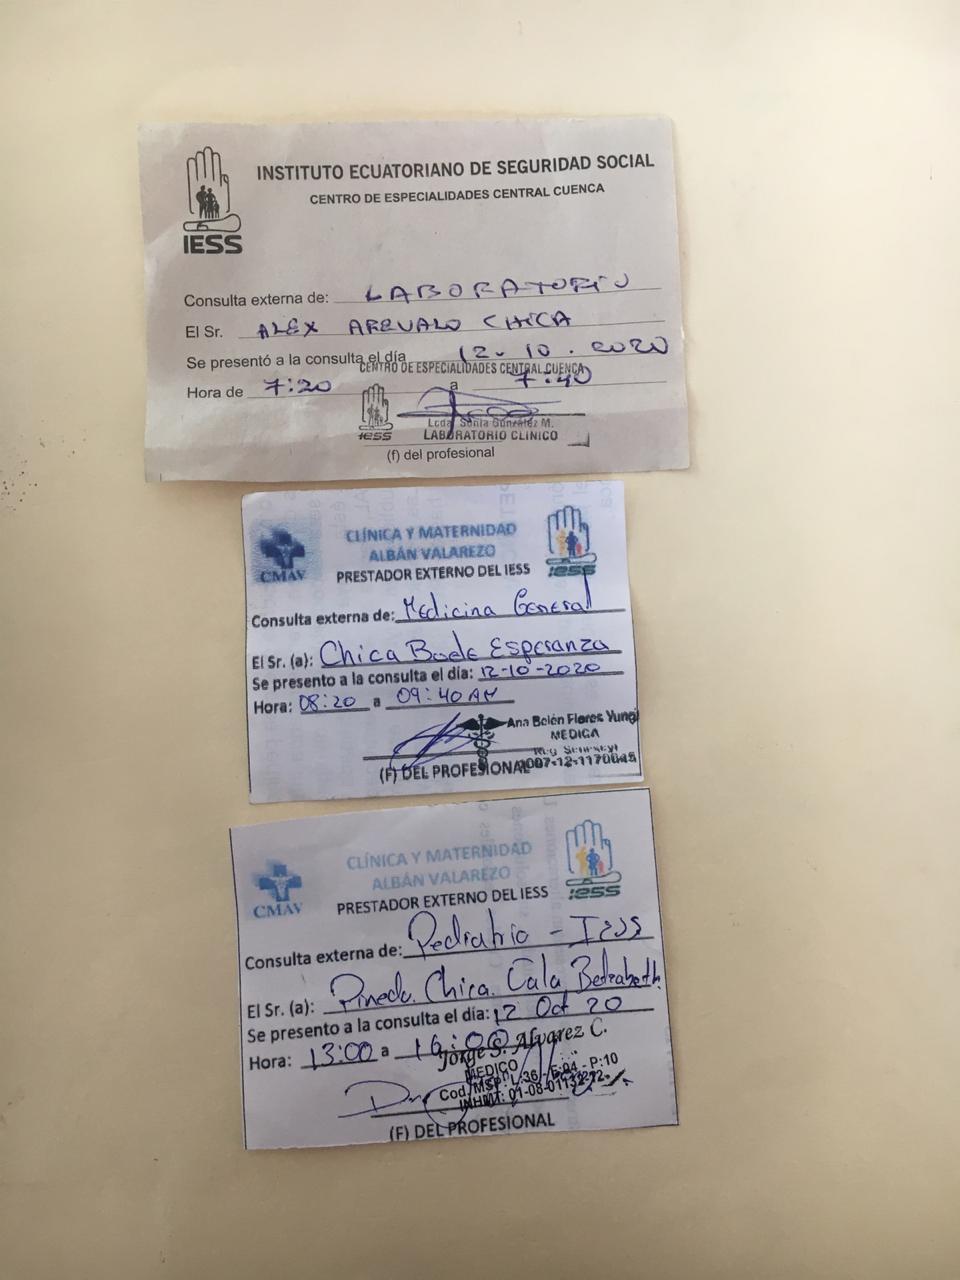 INSTITUTO ECUATORIANO DE SEGURIDAD SOCIAL
CENTRO DE ESPECIALIDADES CENTRAL CUENCA
IESS
Consulta externa de: LABORATORIO
El Sr. ALEX AREVALO CHICA
Se presentó a la consulta el día 12-10.2020
CENTRO DE ESPECIALIDADES CENTRAL CUENCA
Hora de 7:20 a 7:40
IESS
Lcda. Sonia González M.
LABORATORIO CLÍNICO
(f) del profesional
CLÍNICA Y MATERNIDAD
ALBÁN VALAREZO
CMAV
PRESTADOR EXTERNO DEL IESS
IESS
Consulta externa de: Medicina General
El Sr. (a): Chica Esperanza
Se presento a la consulta el día: 12-10-2020
Hora: 08:20 a 09:40 AM
Ana Belén Flores Yungi
MEDICA
1007-12-1170645
(F) DEL PROFESIONAL
CLÍNICA Y MATERNIDAD
ALBÁN VALAREZO
CMAV
PRESTADOR EXTERNO DEL IESS
IESS
Consulta externa de: Pediatria - IESS
El Sr. (a): Pineda Chica
Se presento a la consulta el día: 12 Oct 20
Hora: 13:00 a 16:00
Jorge S. Alvarez C.
MEDICO
Cod. MSP: L:36 E:04 - P:10
(F) DEL PROFESIONAL